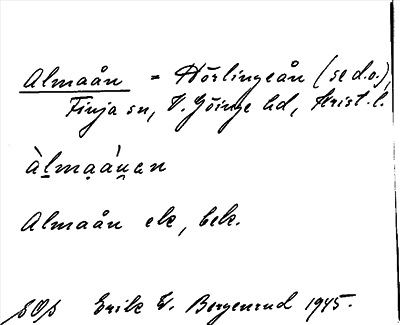 Almaån = Hörlingeån (se d.o.),
Finja sn, V. Göinge hd, Krist. l.
àl̠mạán̠an
Almaån ek, bek.
Erik W. Bergenrud 1945.